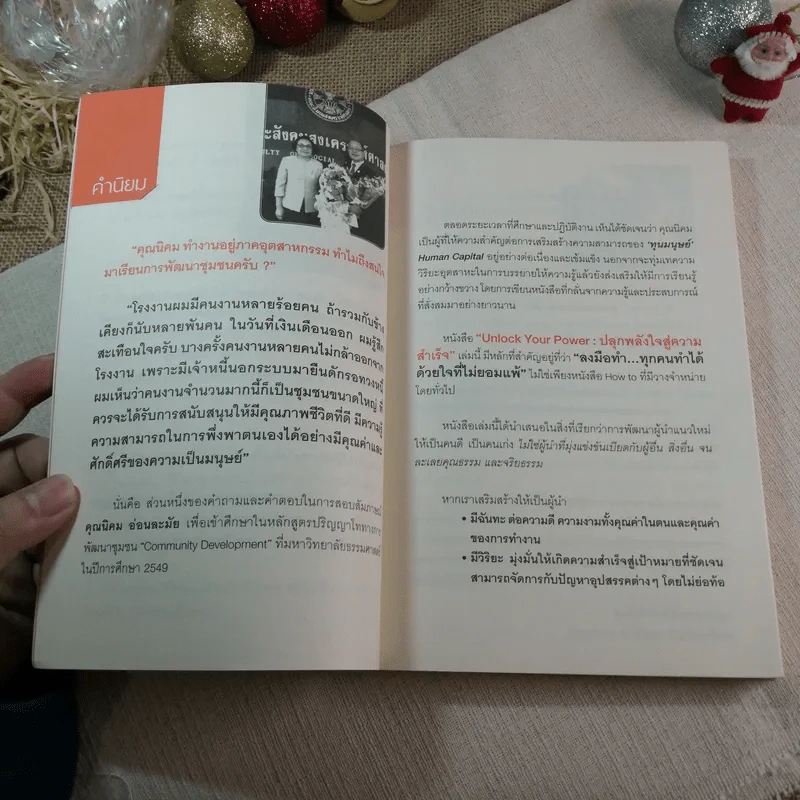 คำนิยม
ะสังคมสงเคราะห์ศาส
LTY OF SOCIAL
"คุณนิคม ทำงานอยู่ภาคอุตสาหกรรม ทำไมถึงสนใจ
มาเรียนการพัฒนาชุมชนครับ ?"
"โรงงานผมมีคนงานหลายร้อยคน ถ้ารวมกับข้าง
เคียงก็นับหลายพันคน ในวันที่เงินเดือนออก ผมรู้สึก
สะเทือนใจครับ บางครั้งคนงานหลายคนไม่กล้าออกจาก
โรงงาน เพราะมีเจ้าหนี้นอกระบบมายืนดักรอทวงหนี้
ผมเห็นว่าคนงานจำนวนมากนี้ก็เป็นชุมชนขนาดใหญ่ ที่
ควรจะได้รับการสนับสนุนให้มีคุณภาพชีวิตที่ดี มีความรู้
ความสามารถในการพึ่งพาตนเองได้อย่างมีคุณค่าและ
ศักดิ์ศรีของความเป็นมนุษย์"
นั่นคือ ส่วนหนึ่งของคำถามและคำตอบในการสอบสัมภาษณ์
คุณนิคม อ่อนละมัย เพื่อเข้าศึกษาในหลักสูตรปริญญาโททางการ
พัฒนาชุมชน "Community Development" ที่มหาวิทยาลัยธรรมศาสตร์
ในปีการศึกษา 2549
ตลอดระยะเวลาที่ศึกษาและปฏิบัติงาน เห็นได้ชัดเจนว่า คุณนิคม
เป็นผู้ที่ให้ความสำคัญต่อการเสริมสร้างความสามารถของ 'ทุนมนุษย์'
Human Capital อยู่อย่างต่อเนื่องและเข้มแข็ง นอกจากจะทุ่มเทความ
วิริยะอุตสาหะในการบรรยายให้ความรู้แล้วยังส่งเสริมให้มีการเรียนรู้
อย่างกว้างขวาง โดยการเขียนหนังสือที่กลั่นจากความรู้และประสบการณ์
ที่สั่งสมมาอย่างยาวนาน
หนังสือ "Unlock Your Power : ปลุกพลังใจสู่ความ
สำเร็จ" เล่มนี้ มีหลักที่สำคัญอยู่ที่ว่า "ลงมือทำ...ทุกคนทำได้
ด้วยใจที่ไม่ยอมแพ้" ไม่ใช่เพียงหนังสือ How to ที่มีวางจำหน่าย
โดยทั่วไป
หนังสือเล่มนี้ได้นำเสนอในสิ่งที่เรียกว่าการพัฒนาผู้นำแนวใหม่
ให้เป็นคนดี เป็นคนเก่ง ไม่ใช่ผู้นำที่มุ่งแข่งขันเบียดกับผู้อื่น สิ่งอื่น จน
ละเลยคุณธรรม และจริยธรรม
หากเราเสริมสร้างให้เป็นผู้นำ
• มีฉันทะ ต่อความดี ความงามทั้งคุณค่าในตนและคุณค่า
ของการทำงาน
• มีวิริยะ มุ่งมั่นให้เกิดความสำเร็จสู่เป้าหมายที่ชัดเจน
สามารถจัดการกับปัญหาอุปสรรคต่างๆ โดยไม่ย่อท้อ